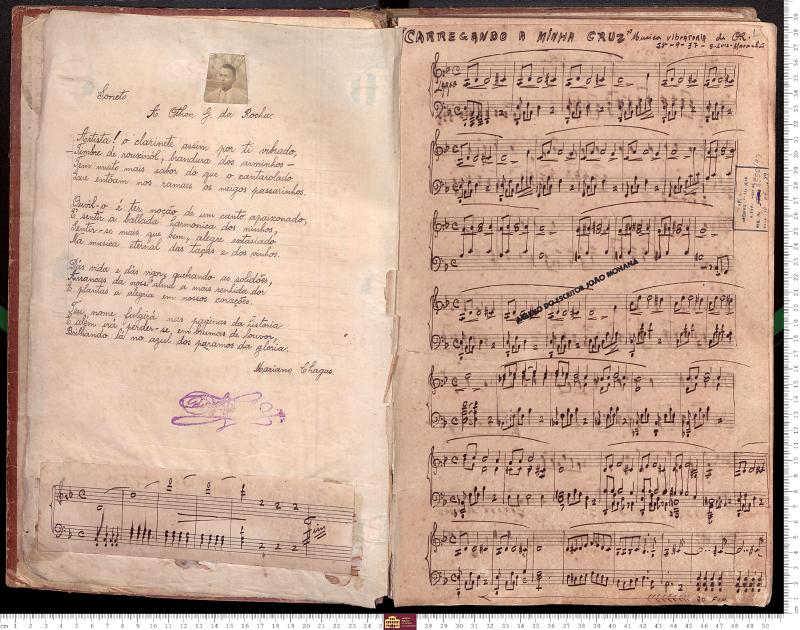 Soneto
A Othon G. da Rocha
Artista! o clarinete assim por ti vibrado,
—Timbre de rouxinól, brandura dos arminhos—
Tem muito mais sabor do que o cantarolado
Que entoam nos ramaes os meigos passarinhos.
Ouvil-o é ter noção de um canto apaixonado,
É sentir a ballada harmonica dos ninhos,
Sentir-se mais que bem, alegre extasiado
Na musica eternal das taças e dos vinhos.
Dás vida e dás vigor, quebrando as solidões,
Arrancas da noss'alma a mais renhida dor
E plantas a alegria em nossos corações.
Teu nome fulgirá nas paginas da historia
E além irá perder-se, em brumas de louvor,
Brilhando lá no azul dos paramos da gloria.
Mariano Chagas.
Fim
"CARREGANDO A MINHA CRUZ" Musica vibratoria de OR.
28-9-37 - S. Luiz - Maranhão
ACERVO DO ESCRITOR JOÃO MOHANA
Ao Fim